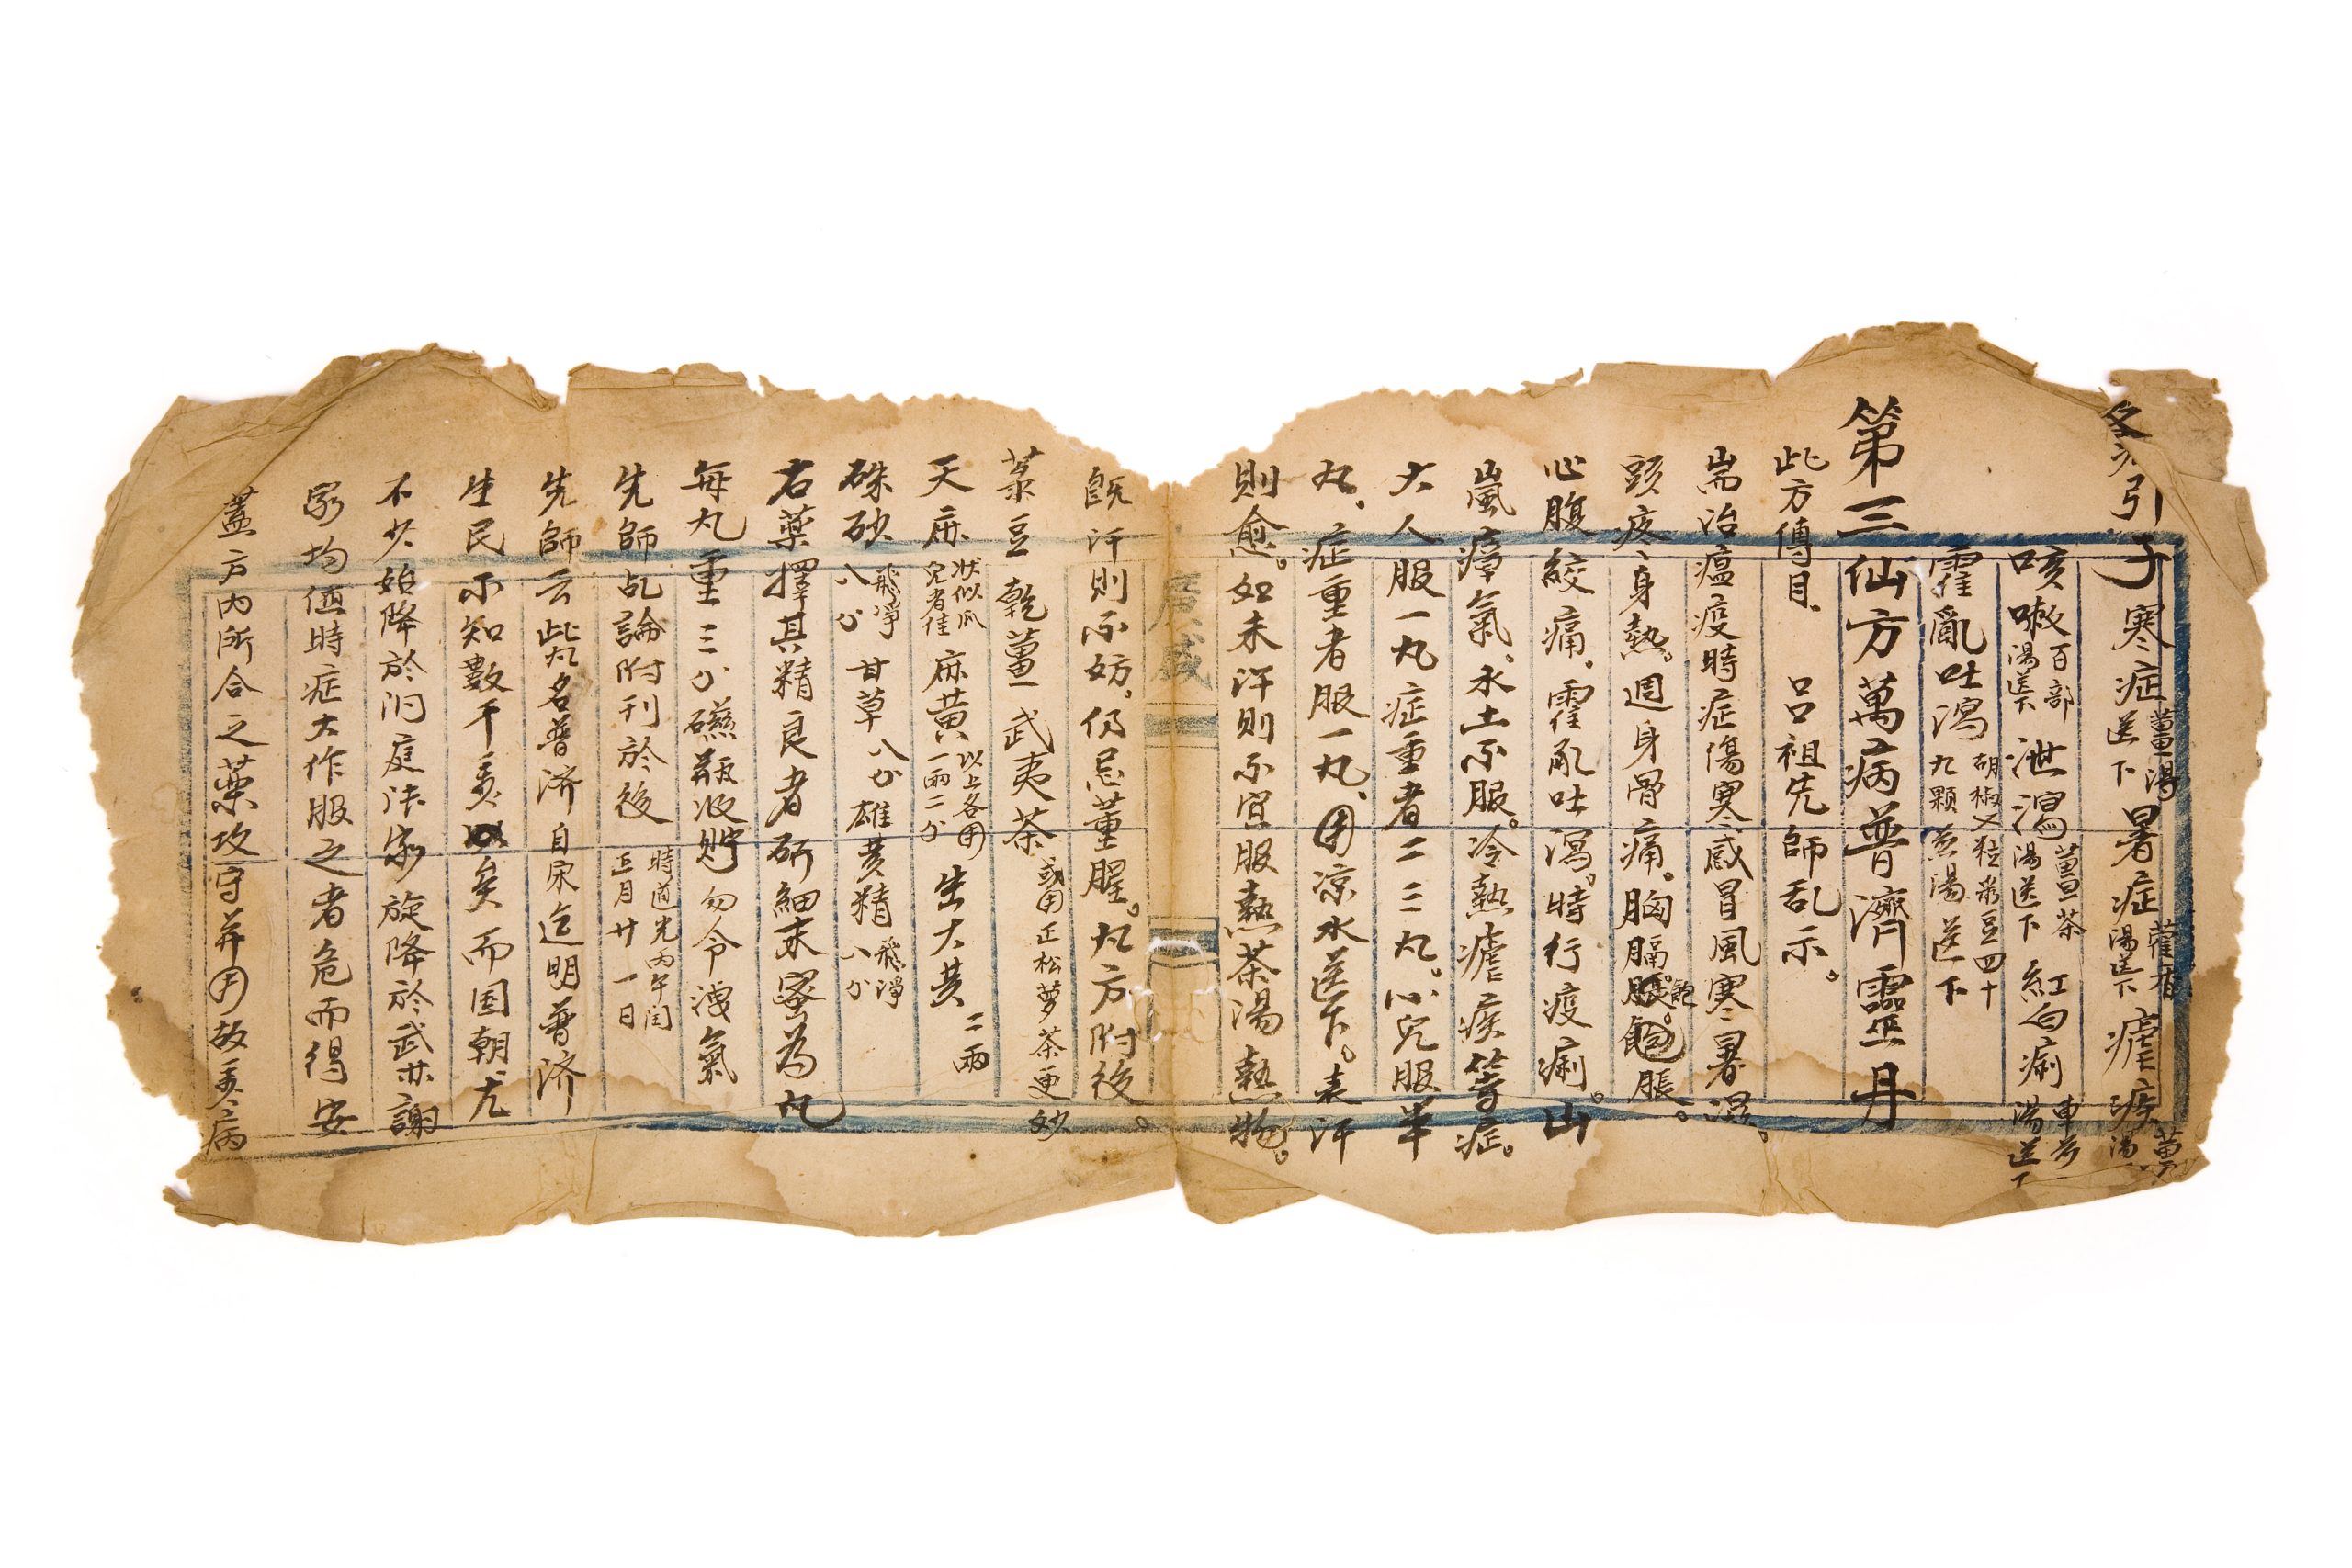 引子 寒症薑湯送下 暑症藿香湯送下 瘧疾薑湯
咳嗽百部湯送下 泄瀉薑茶湯送下 紅白痢車前湯送下
霍亂吐瀉胡椒 粒菉豆四十九顆煎湯送下
第三仙方萬病普濟靈丹
此方傳自 呂祖先師乩示。
耑治瘟疫時症傷寒感冒風寒暑濕。
頭疼、身熱。週身骨痛。胸膈脹飽脹。
心腹絞痛。霍亂吐瀉。時行疫痢。山
嵐瘴氣。水土不服。冷熱瘧疾等症。
大人服一丸症重者二三丸。小兒服半
丸、症重者服一丸、用凉水送下。表汗
則愈。如未汗則不宜服熱茶湯熱物。
既汗則不妨。仍忌葷腥。丸方附後。
菉豆 乾薑 武夷茶或用正松萝茶更妙
天麻狀似瓜兒者佳 麻黃以上各用一兩二分 生大黄二兩
硃砂飛淨八分 甘草八分 雄黄精飛淨八分
右藥擇其精良者研細末蜜為丸
每丸重三分礠瓶收貯勿令洩氣
先師乩論附刊於後時道光丙午閏正月廿一日
先師云此丸名普济自宋迄明普济
生民不知數千 矣而国朝尤
不少始降於洞庭 家旋降於武林謝
家均值時症大作服之者危而得安
蓋方內所合之藥攻守并用故 病